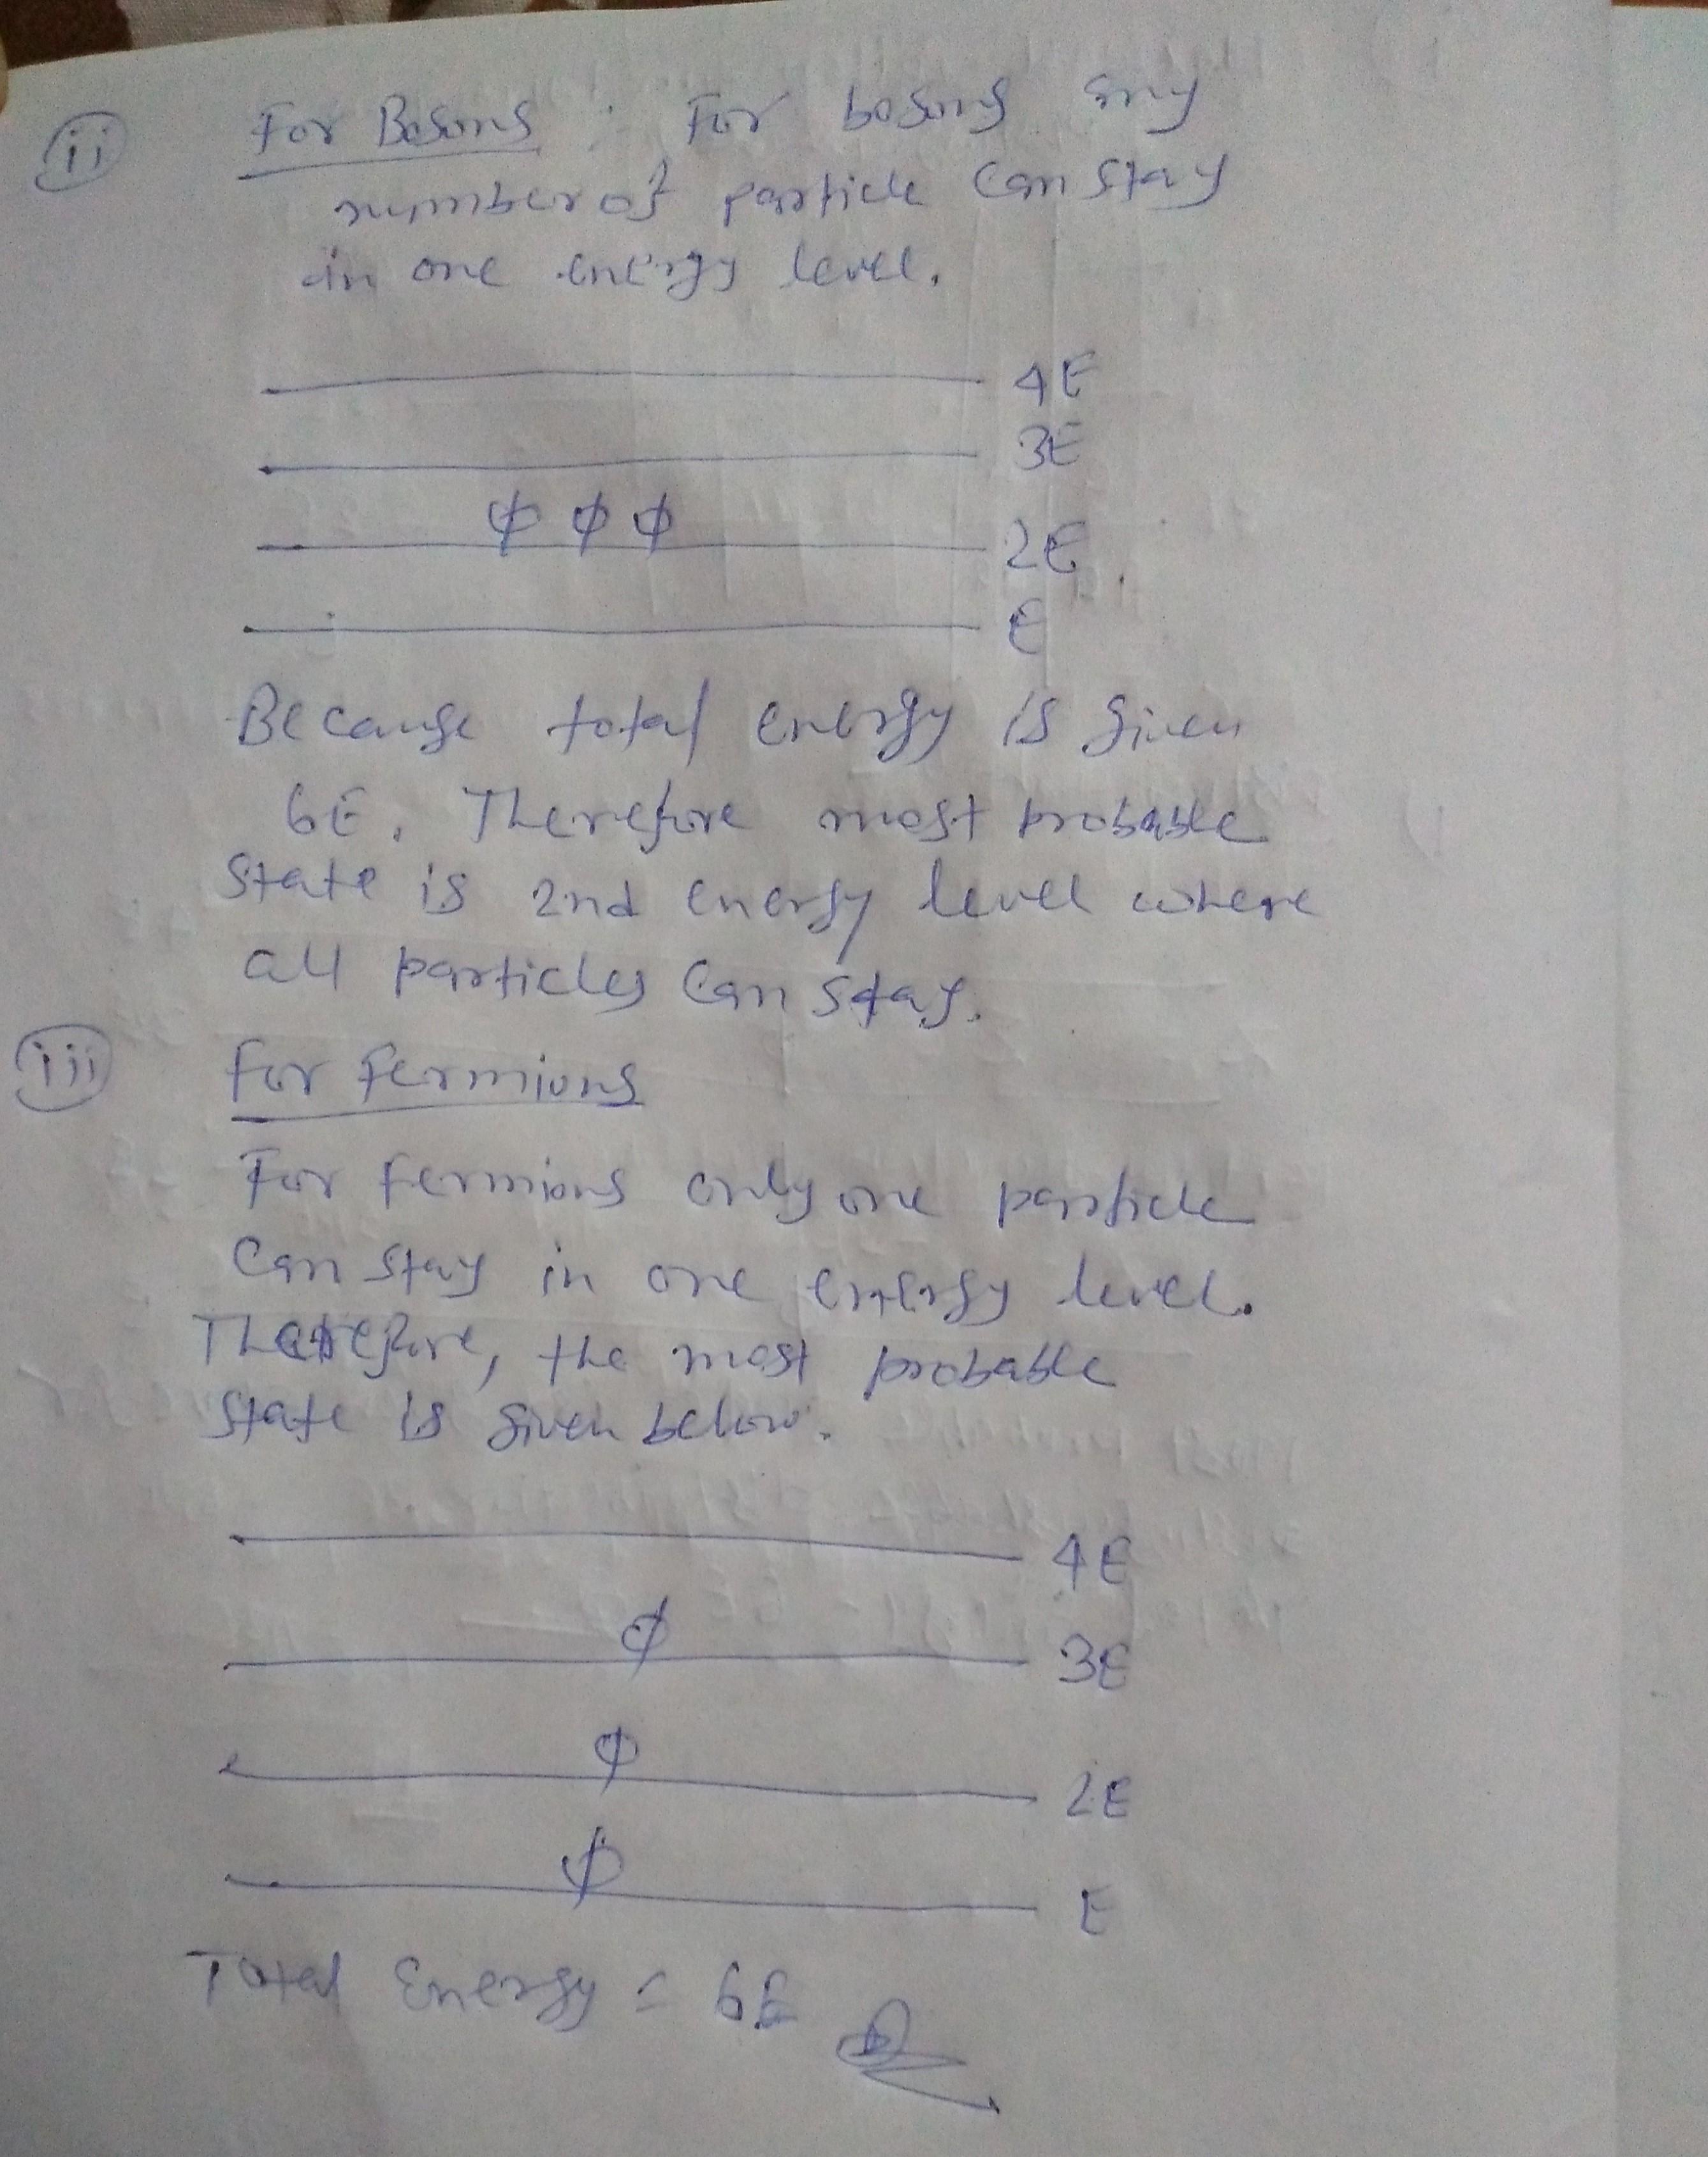 ii For Bosons : For bosons any
number of particle can stay
in one energy level.
4E
3E
φ φ φ
2E
E
Because total energy is given
6E. Therefore most probable
state is 2nd energy level where
all particles can stay.
iii For fermions
For fermions only one particle
can stay in one energy level.
Therefore, the most probable
state is given below.
4E
φ
3E
φ
2E
φ
E
Total Energy = 6E